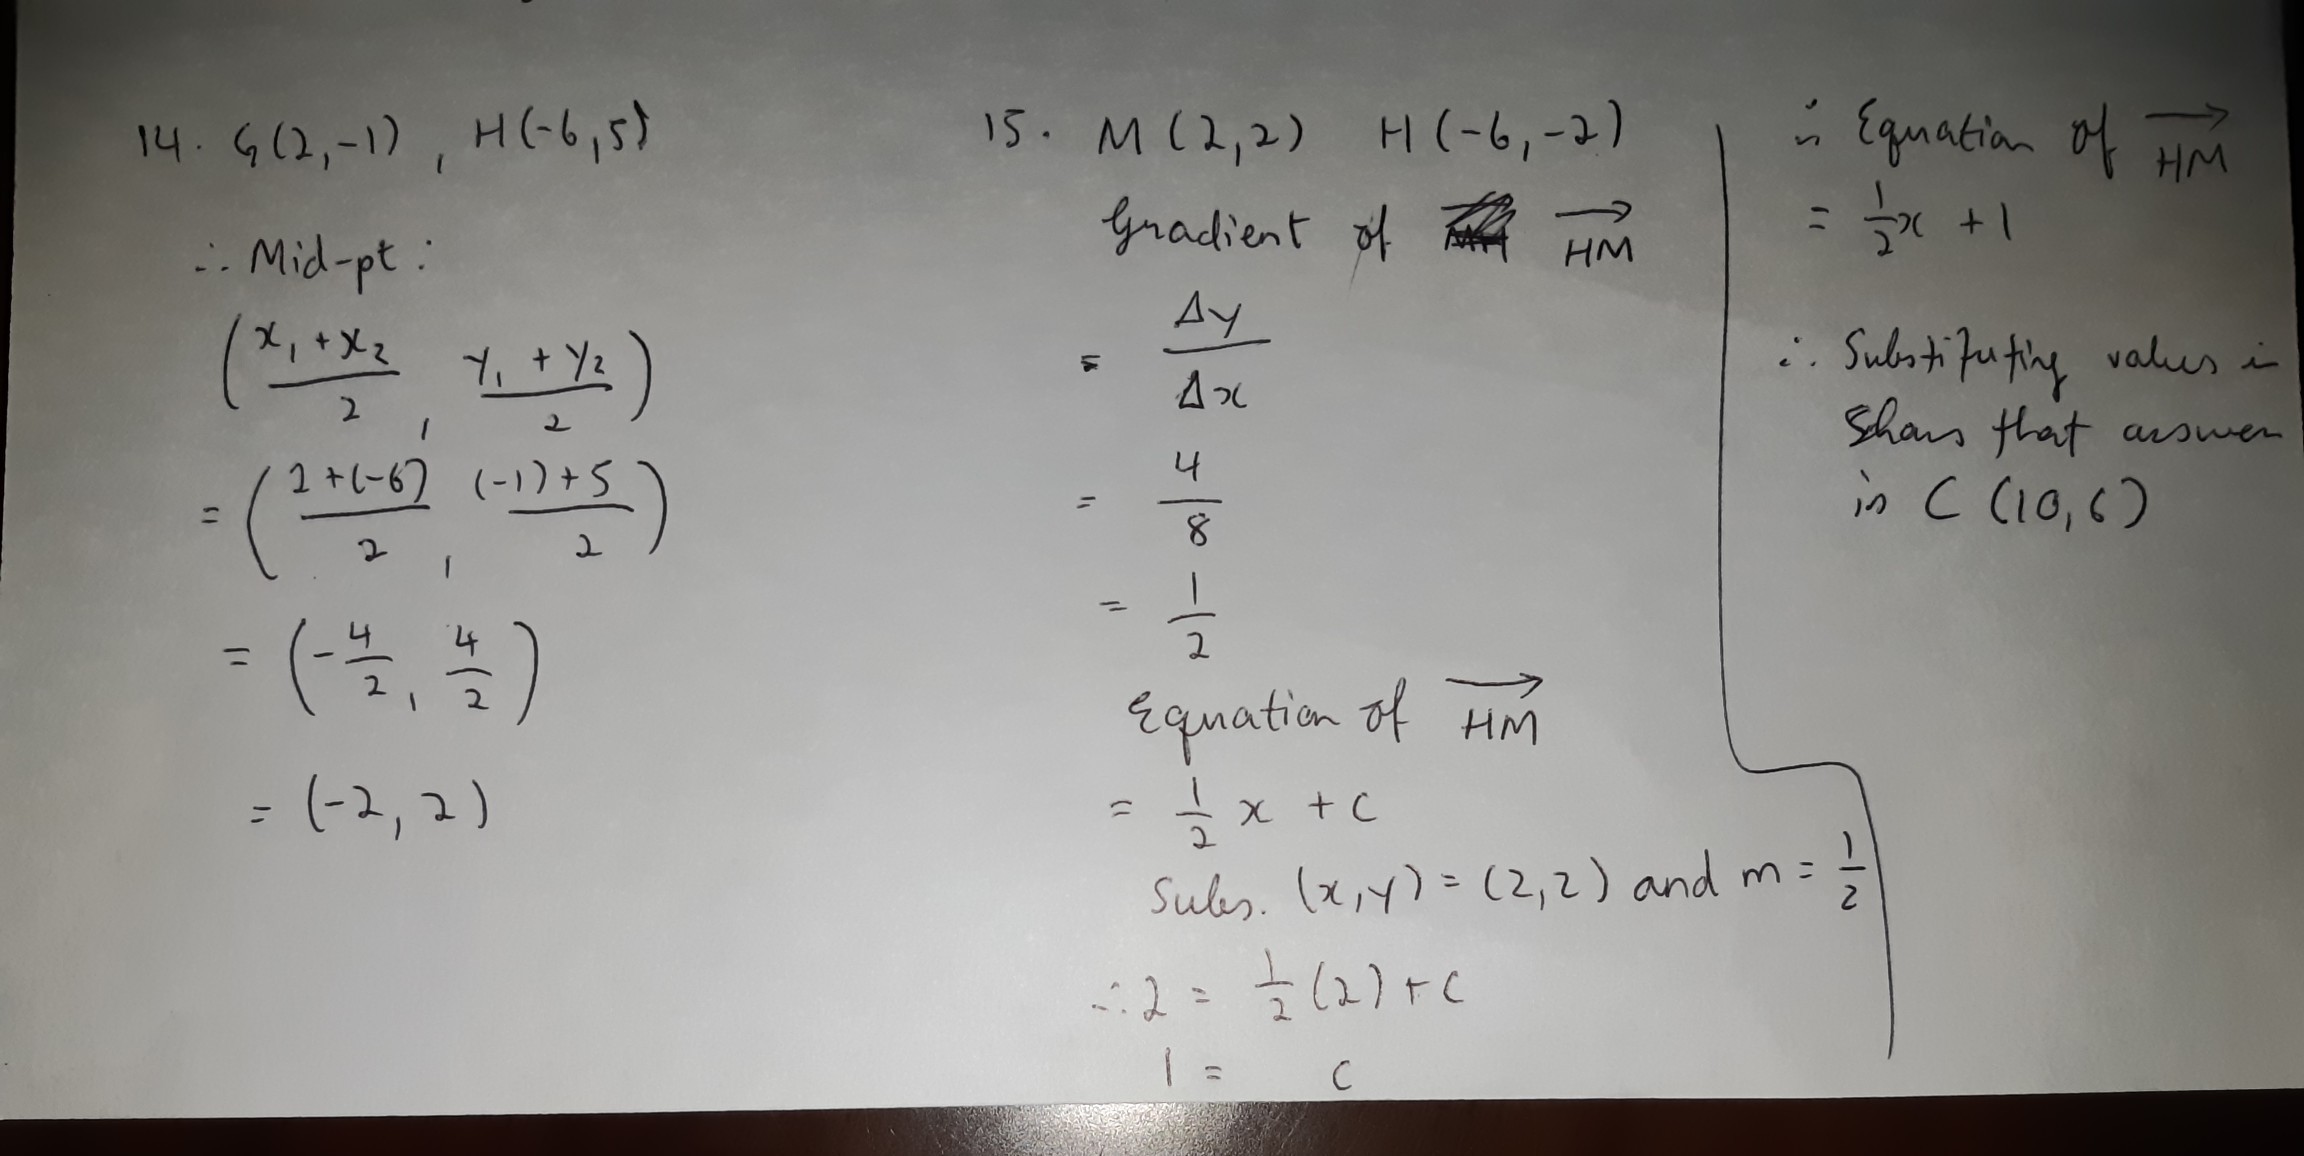 14. G(2,-1), H(-6,5)
∴ Mid-pt:
((x₁+x₂)/2, (y₁+y₂)/2)
= ((2+(-6))/2, ((-1)+5)/2)
= (-4/2, 4/2)
= (-2, 2)
15. M(2,2) H(-6,-2)
Gradient of HM
= Δy/Δx
= 4/8
= 1/2
Equation of HM
= 1/2 x + c
Subs. (x,y) = (2,2) and m = 1/2
∴ 2 = 1/2 (2) + c
1 = c
∴ Equation of HM
= 1/2 x + 1
∴ Substituting values in
shows that answer
is C (10,6)